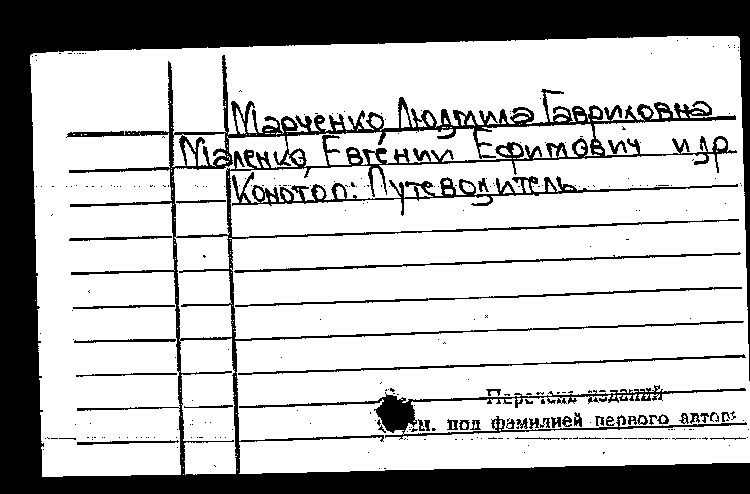 Марченко, Людмила Гавриловна
Маленко, Евгений Ефимович и др
Конотоп: Путеводитель.
Перечень изданий
см. под фамилией первого автора